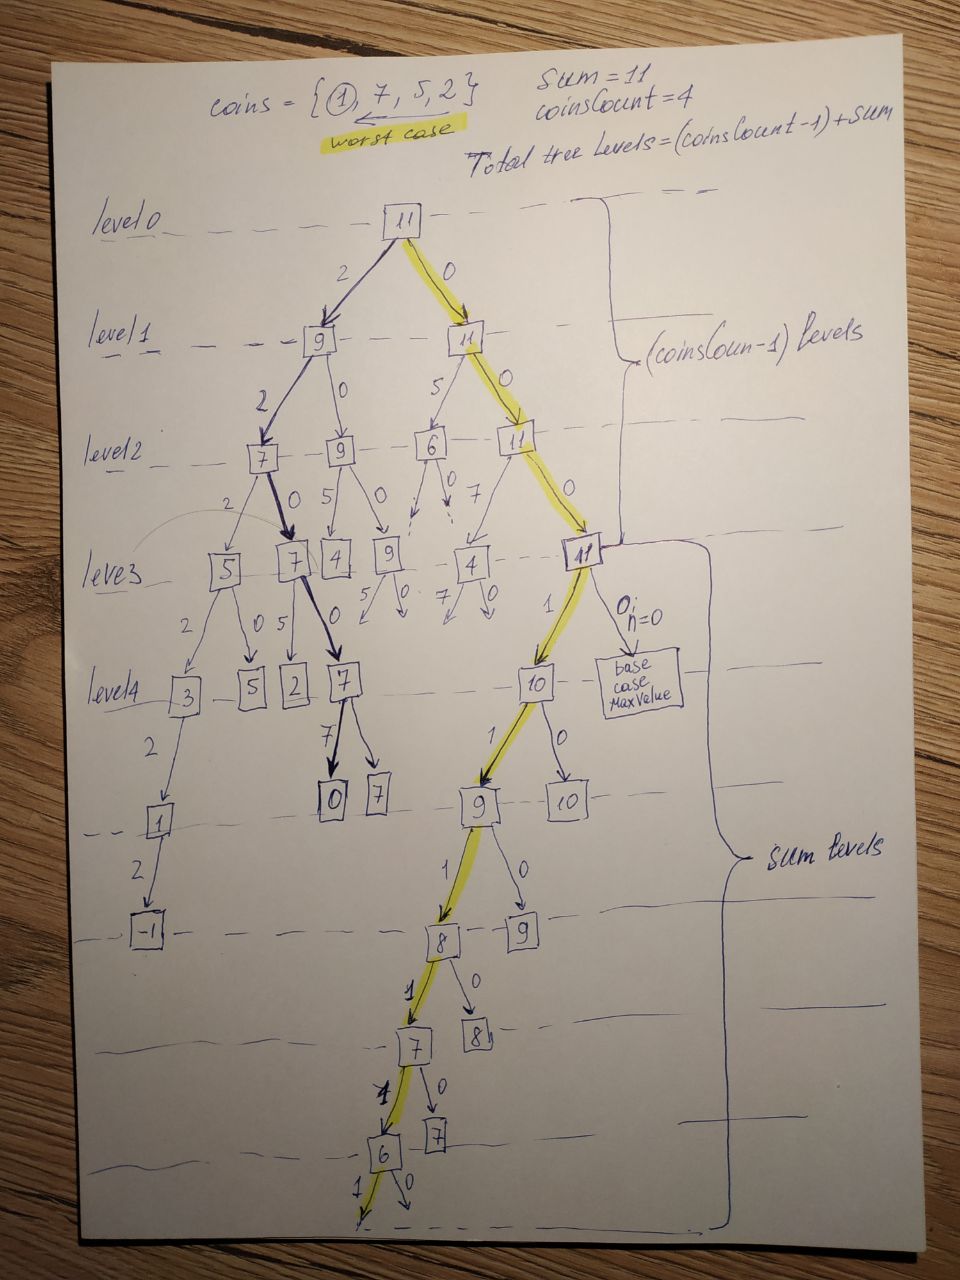 coins = {1, 7, 5, 2}
worst case
Sum=11
coinsCount=4
Total tree Levels=(coinsCount-1)+Sum
level0
11
2 0
level1
9 11
(coinsCoun-1) levels
2 0 5 0
level2
7 9 6 11
2 0 5 0 0 7 0
leve3
5 7 4 9 4 11
2 0 5 0 5 0 7 0 1 0; n=0
level4
3 5 2 7 10
base
case
MaxValue
2 7 1 0
1 0 7 9 10
sum levels
2 1 0
-1 8 9
1 0
7 8
1 0
6 7
1 0